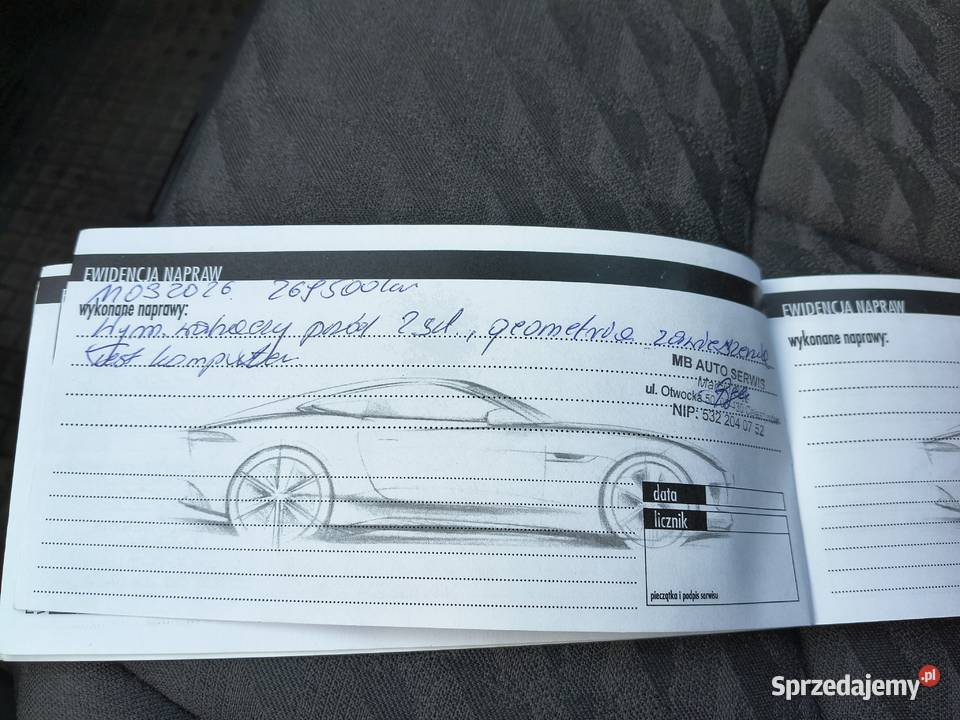 EWIDENCJA NAPRAW
11032026. 269500km
wykonane naprawy:
Wym. wahaczy przód 2szt., geometria zawieszenia
Test komputer
MB AUTO SERWIS
ul. Otwocka
NIP: 532 204 07 52
data
licznik
pieczątka i podpis serwisu
EWIDENCJA NAPRAW
wykonane naprawy:
Sprzedajemy.pl